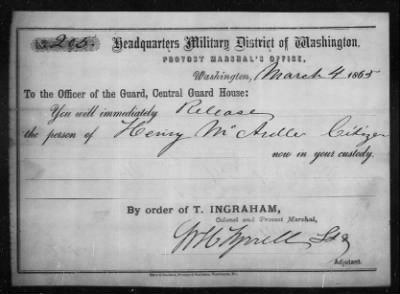 No. 205. Headquarters Military District of Washington,
PROVOST MARSHAL'S OFFICE,
Washington, March 4 1865
To the Officer of the Guard, Central Guard House:
You will immediately Release
the person of Henry McArdle Citizen
now in your custody.
By order of T. INGRAHAM,
Colonel and Provost Marshal,
Adjutant.